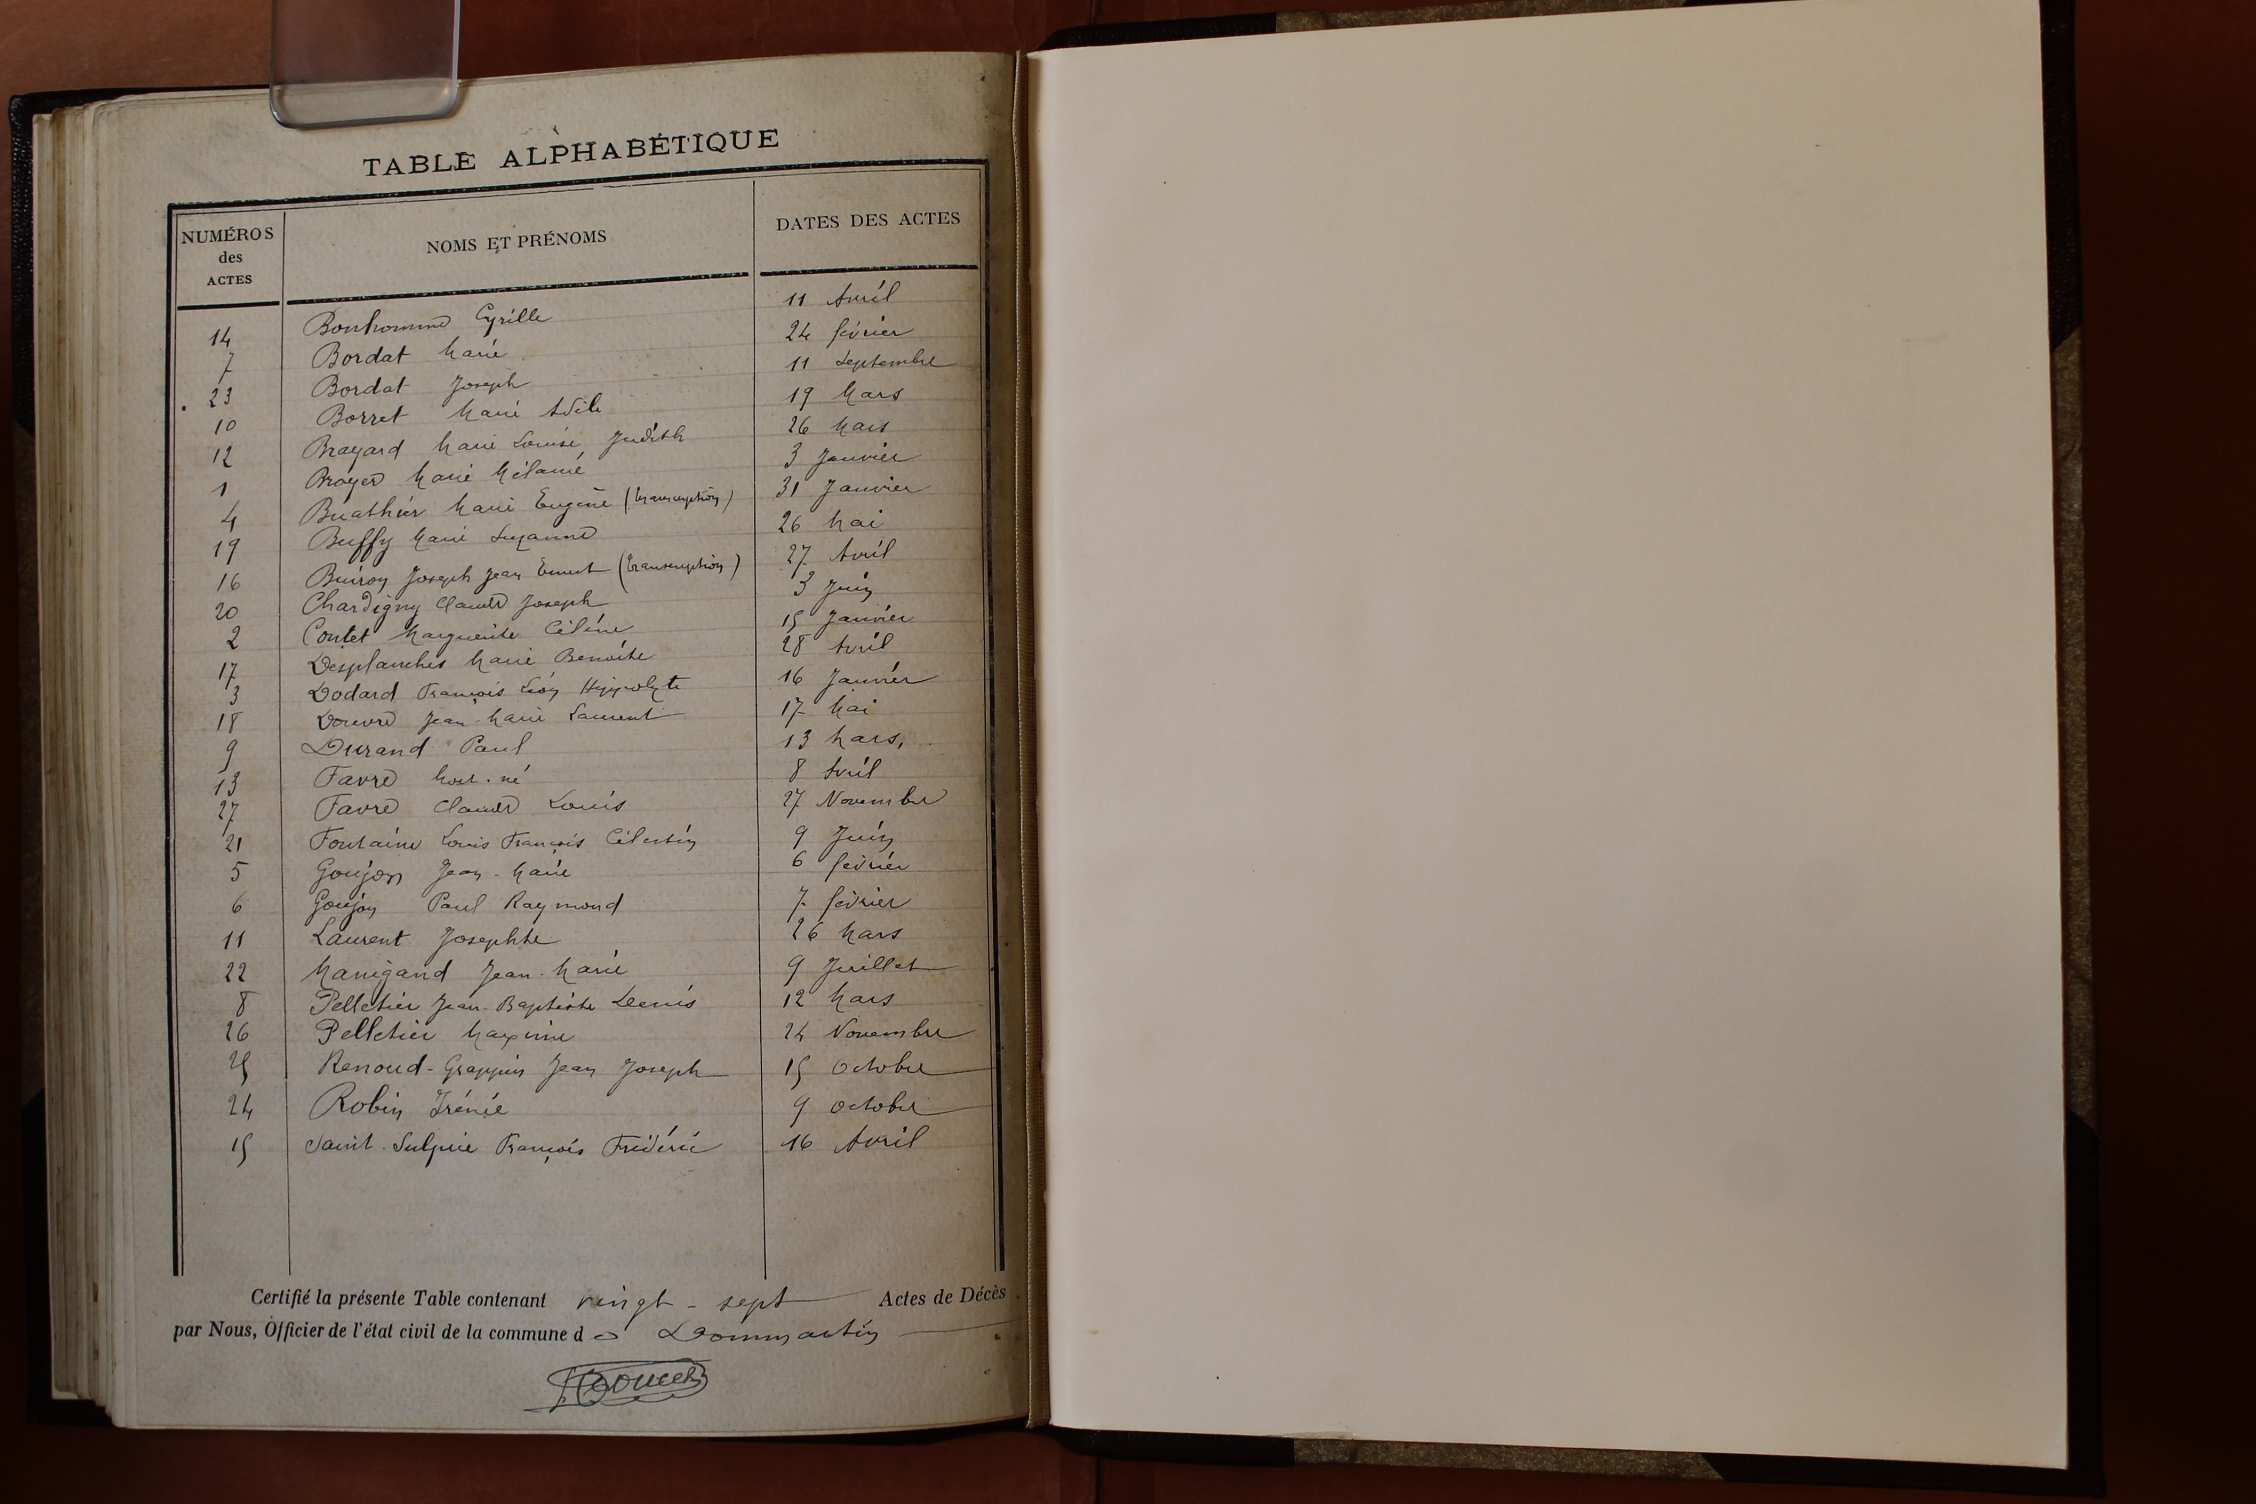 TABLE ALPHABÉTIQUE
NUMÉROS des ACTES NOMS ET PRÉNOMS DATES DES ACTES
14 Bonhomme Cyrille 11 Avril
7 Bordat Marie 24 février
23 Bordat Joseph 11 Septembre
10 Borret Marie Adèle 19 Mars
12 Brayard Marie Louise Judith 26 Mars
1 Broyer Marie Mélanie 3 Janvier
4 Buathier Marie Eugène (transcription) 31 Janvier
19 Buffy Marie Suzanne 26 Mai
16 Buiron Joseph Jean Ernest (transcription) 27 Avril
20 Chardigny Claude Joseph 3 Juin
2 Contet Marguerite Céline 15 Janvier
17 Desplanches Marie Benoîte 28 Avril
3 Dodard François Léon Hippolyte 16 Janvier
18 Douvre Jean-Marie Laurent 17 Mai
9 Durand Paul 13 Mars,
13 Favre Mort-né 8 Avril
27 Favre Claude Louis 27 Novembre
21 Fontaine Louis François Célestin 9 Juin
5 Goujon Jean-Marie 6 février
6 Goujon Paul Raymond 7 février
11 Laurent Josephte 26 Mars
22 Manigand Jean-Marie 9 Juillet
8 Pelletier Jean-Baptiste Denis 12 Mars
26 Pelletier Maxime 24 Novembre
25 Renoud-Grappin Jean Joseph 15 Octobre
24 Robin Irénée 9 octobre
15 Saint-Sulpice François Frédéric 16 Avril
Certifié la présente Table contenant vingt-sept Actes de Décès
par Nous, Officier de l'état civil de la commune de Dommartin